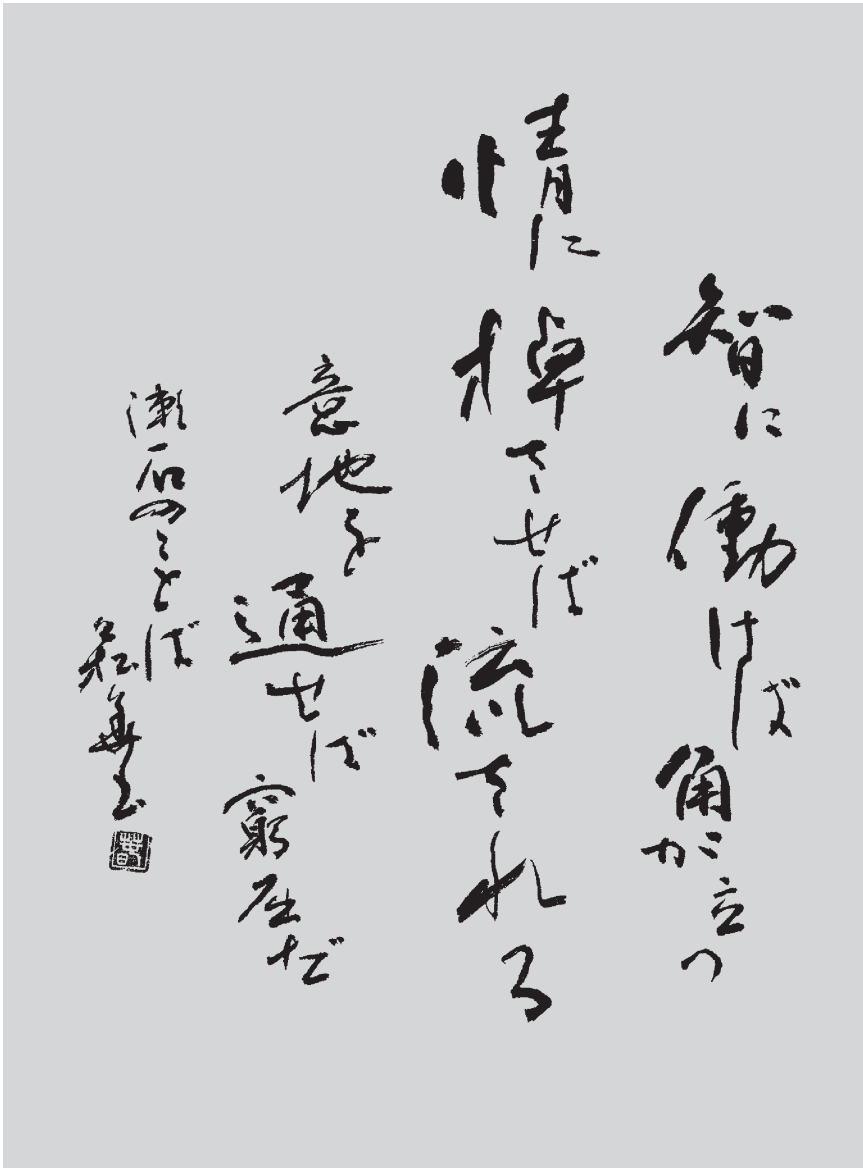 智に働けば角が立つ
情に棹させば流される
意地を通せば窮屈だ
漱石のことば